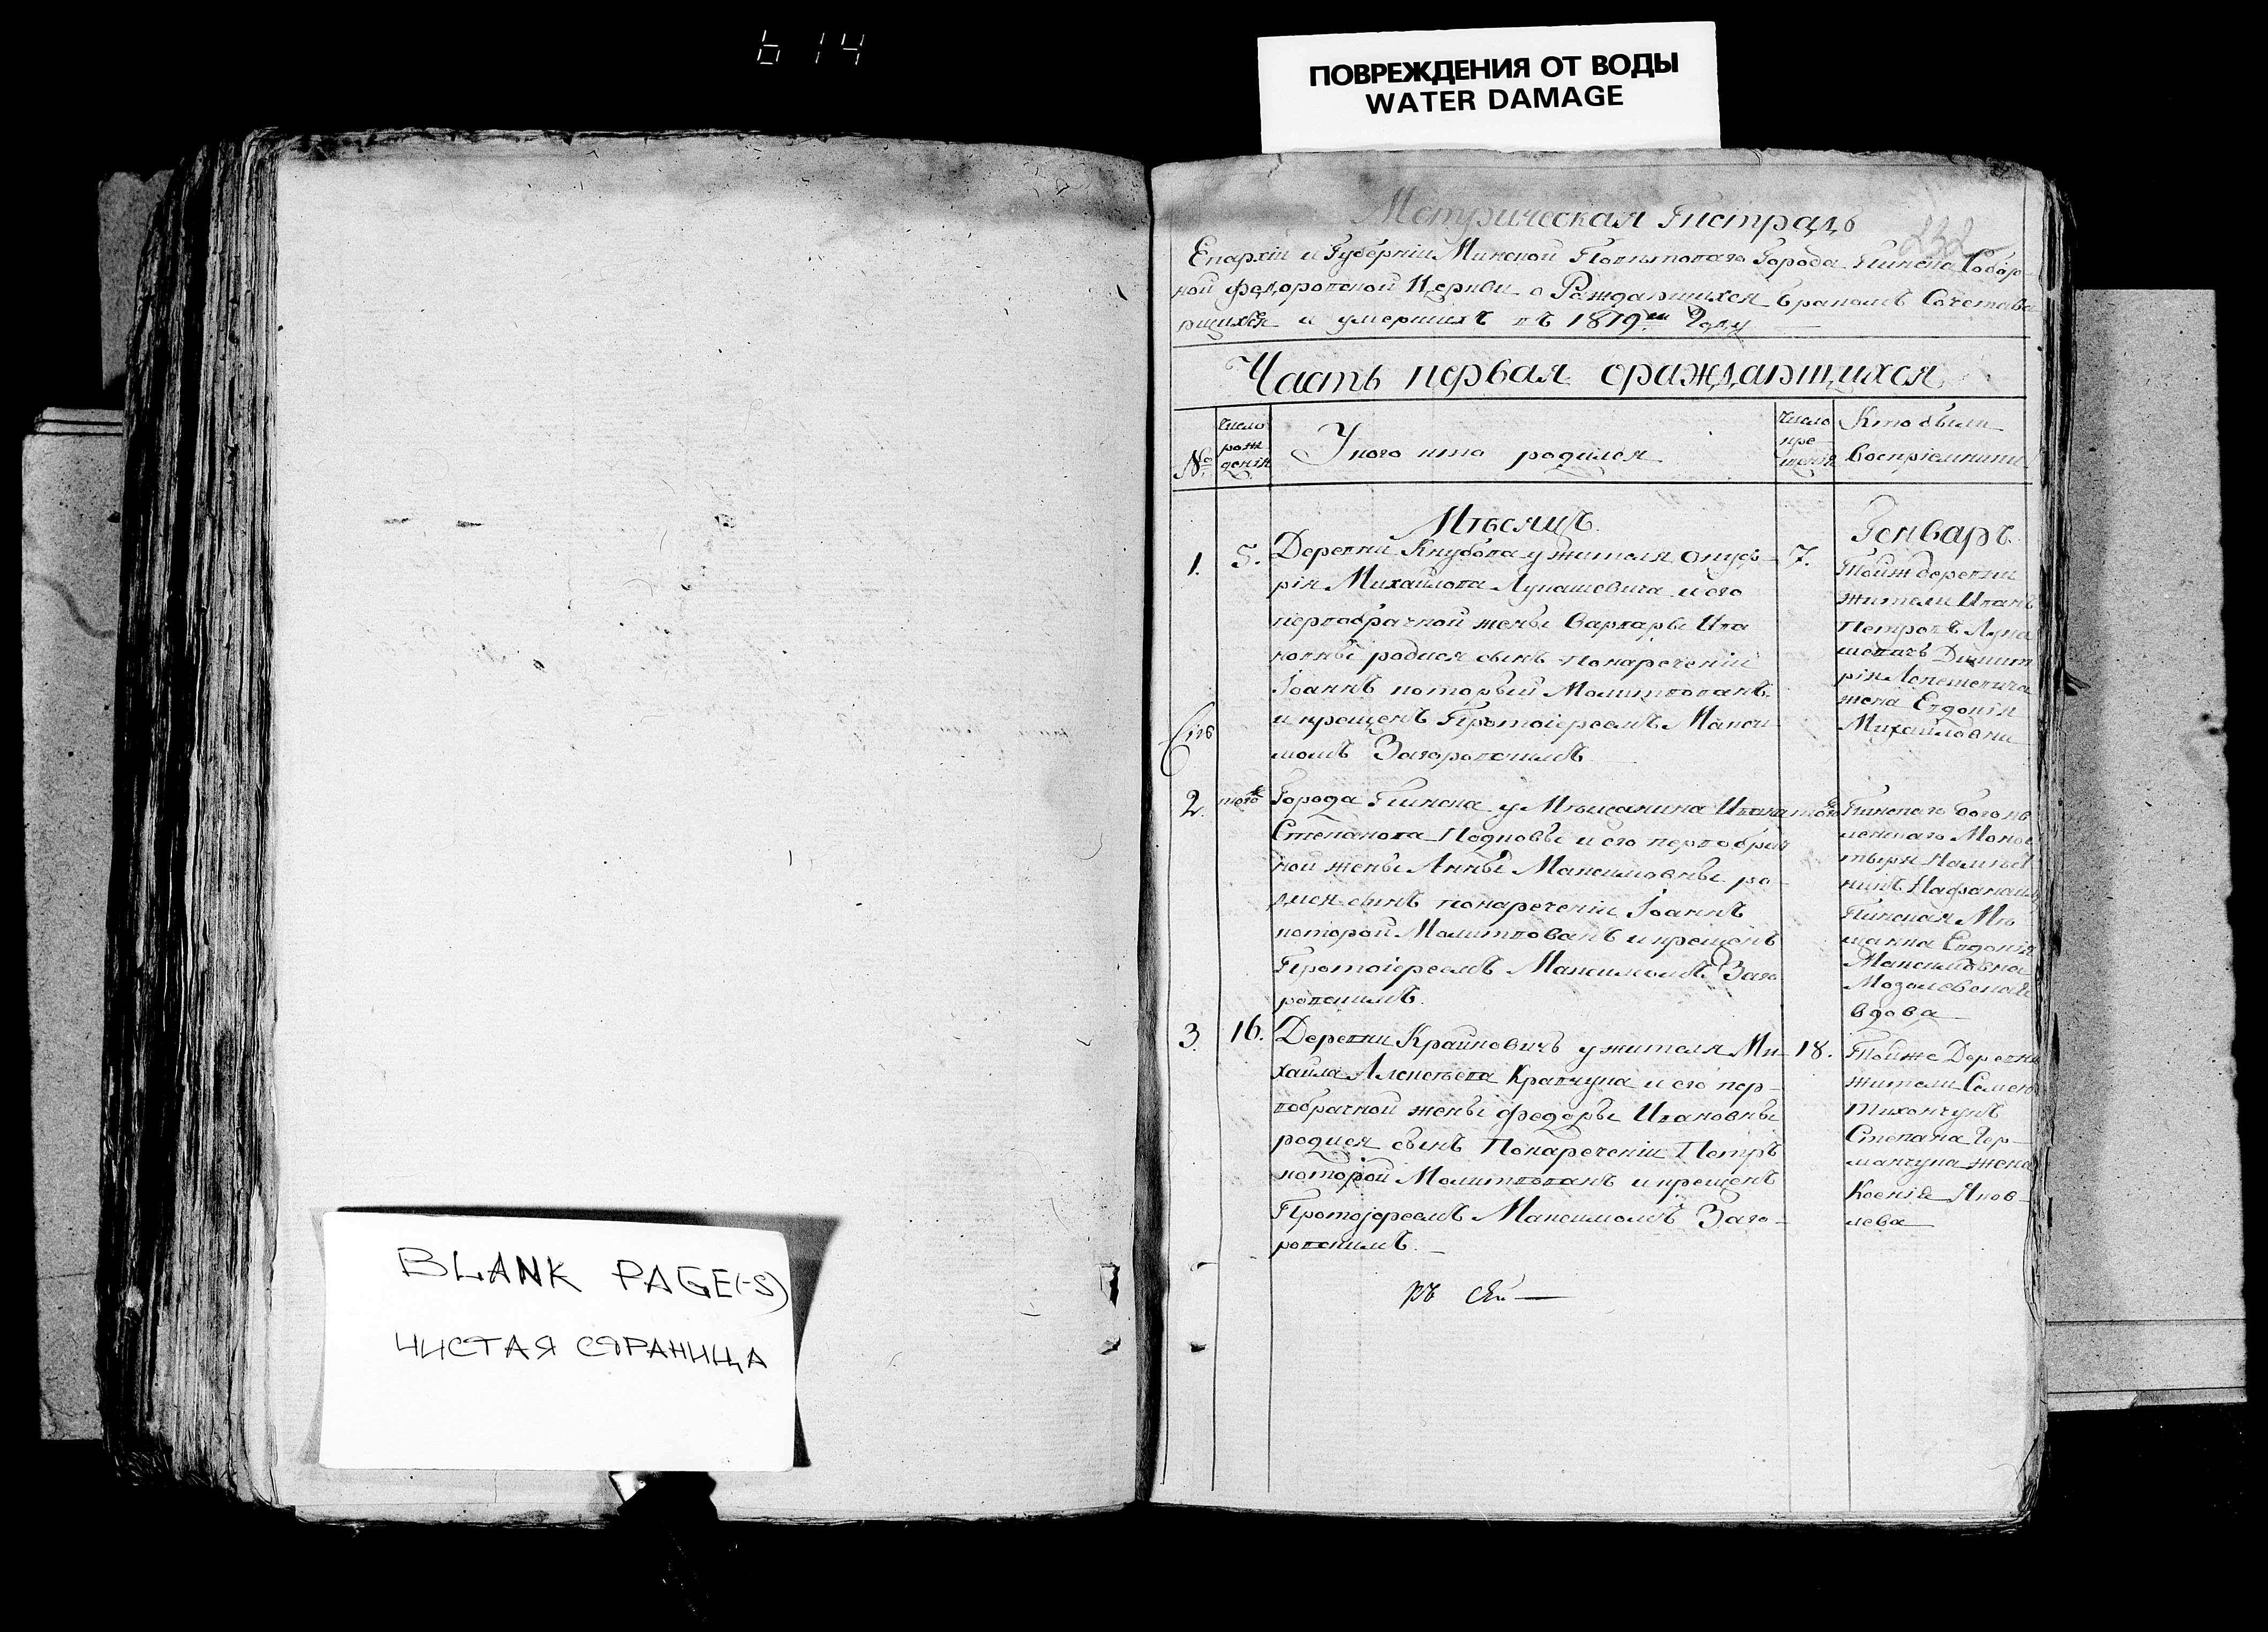 614
ПОВРЕЖДЕНИЯ ОТ ВОДЫ
WATER DAMAGE
BLANK PAGE(-S)
ЧИСТАЯ СТРАНИЦА
232
Метрическая Тистрадь
Епархіи и Губерніи Минской Повѣтового Города Пинска Собор-
ной Федоровской Церкви о Рождавшихся Бракомъ Сочетав
шихся и умершихъ въ 1819м Году
Часть первая ораждавшихся
№
Число рож денія
У кого кто родился
Число кре щенія
Кто были Воспріемники
Мѣсяцъ Генварь
1. 5.
Деревни Кнубова у жителя Онуф-
рія Михайлова Лукашевича и его
первобрачной жены Варвары Ива
новны родися сынъ понареченіи
Іоаннъ который Молитвованъ
и крещенъ Протоіереемъ Макси
момъ Загоровскимъ
7.
Тойж деревни
жители Иванъ
Петровъ Лука
шевичъ Димит
рія Алексѣевича
жена Евдокія
Михайловна
2. того
Города Пинска у Мѣщанина Ивана
Степанова и его первобрач
ной жены Анны Максимовны ро
дися сынъ понареченіи Іоаннъ
которой Молитвованъ и крещенъ
Протоіереемъ Максимомъ Заго
ровскимъ.
Пинского Богояв
ленского Монас
тыря Намѣст
никъ Нафанаилъ
Пинская Мѣ
щанка Евдокія
Максимовна
Мозолевская
вдова
3. 16.
Деревни Крайновичъ у жителя Ми-
хайла Алексѣева Кравчука и его пер-
вобрачной жены Федоры Ивановны
родися сынъ Понареченіи Петръ
которой Молитвованъ и крещенъ
Протоіереемъ Максимомъ Заго-
ровскимъ.
18.
Тойже Деревни
жители Семенъ
Тихончукъ
Степана Гер-
манчука жена
Ксенія Яков-
лева